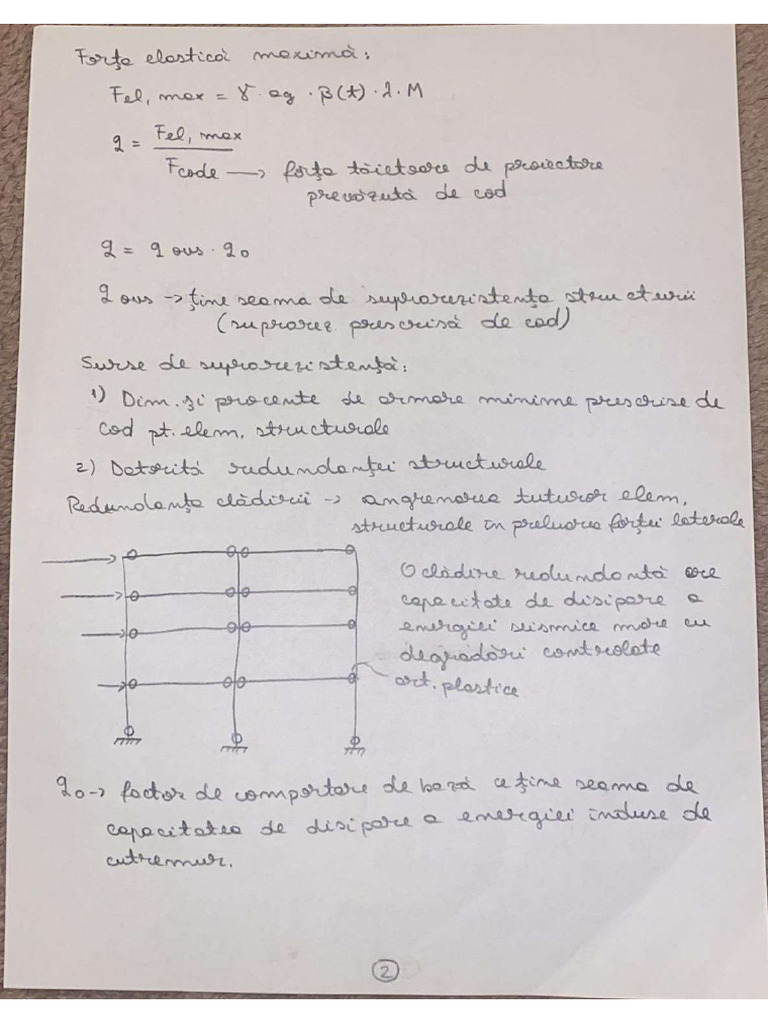 Forța elastică maximă:
Fel, max = γ · ag · β(t) · λ · M
q = Fel, max / Fcode → forța tăietoare de proiectare
prevăzută de cod
q = q ovs · q0
q ovs → ține seama de suprarezistența structurii
(suprarez prescrisă de cod)
Surse de suprarezistență:
1) Dim. și procente de armare minime prescrise de
cod pt. elem. structurale
2) Datorită redundanței structurale
Redundanța clădirii → angrenarea tuturor elem.
structurale în preluarea forței laterale
O clădire redundantă are
capacitate de disipare a
energiei seismice mare cu
degradări controlate
art. plastice
q0 → factor de comportare de bază ce ține seama de
capacitatea de disipare a energiei induse de
cutremur.
2